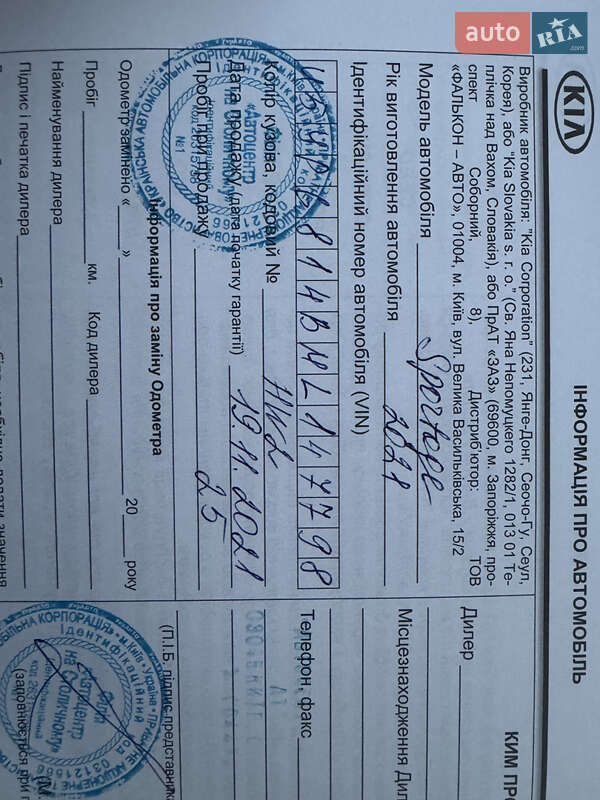 auto RIA.com
KIA
ІНФОРМАЦІЯ ПРО АВТОМОБІЛЬ
Виробник автомобіля: "Kia Corporation" (231, Янге-Донг, Сеочо-Гу, Сеул,
Корея), або "Kia Slovakia s. r. o." (Св. Яна Непомуцкего 1282/1, 013 01 Те-
плічка над Вахом, Словакія), або ПрАТ «ЗАЗ» (69600, м. Запоріжжя, про-
спект Соборний, 8), Дистриб'ютор: ТОВ
«ФАЛЬКОН – АВТО», 01004, м. Київ, вул. Велика Васильківська, 15/2
Модель автомобіля Sportage
Рік виготовлення автомобіля 2021
Ідентифікаційний номер автомобіля (VIN)
814BML147798
Колір кузова, кодовий № HW2
Дата продажу (дата початку гарантії) 19.11.2021
Пробіг при продажу 25
Інформація про заміну Одометра
Одометр замінено « » 20 року
Пробіг км. Код дилера
Найменування дилера
Підпис і печатка дилера
«Автоцентр
№1
КИМ ПР
Дилер
Місцезнаходження Дил
Телефон, факс
(П.І.Б. підпис представник
Автоцентр
на Столичному»
Ідентифікаційний
03121566
(заповнюється при п